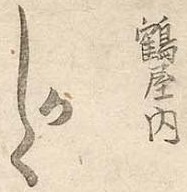 鶴屋内
かしく